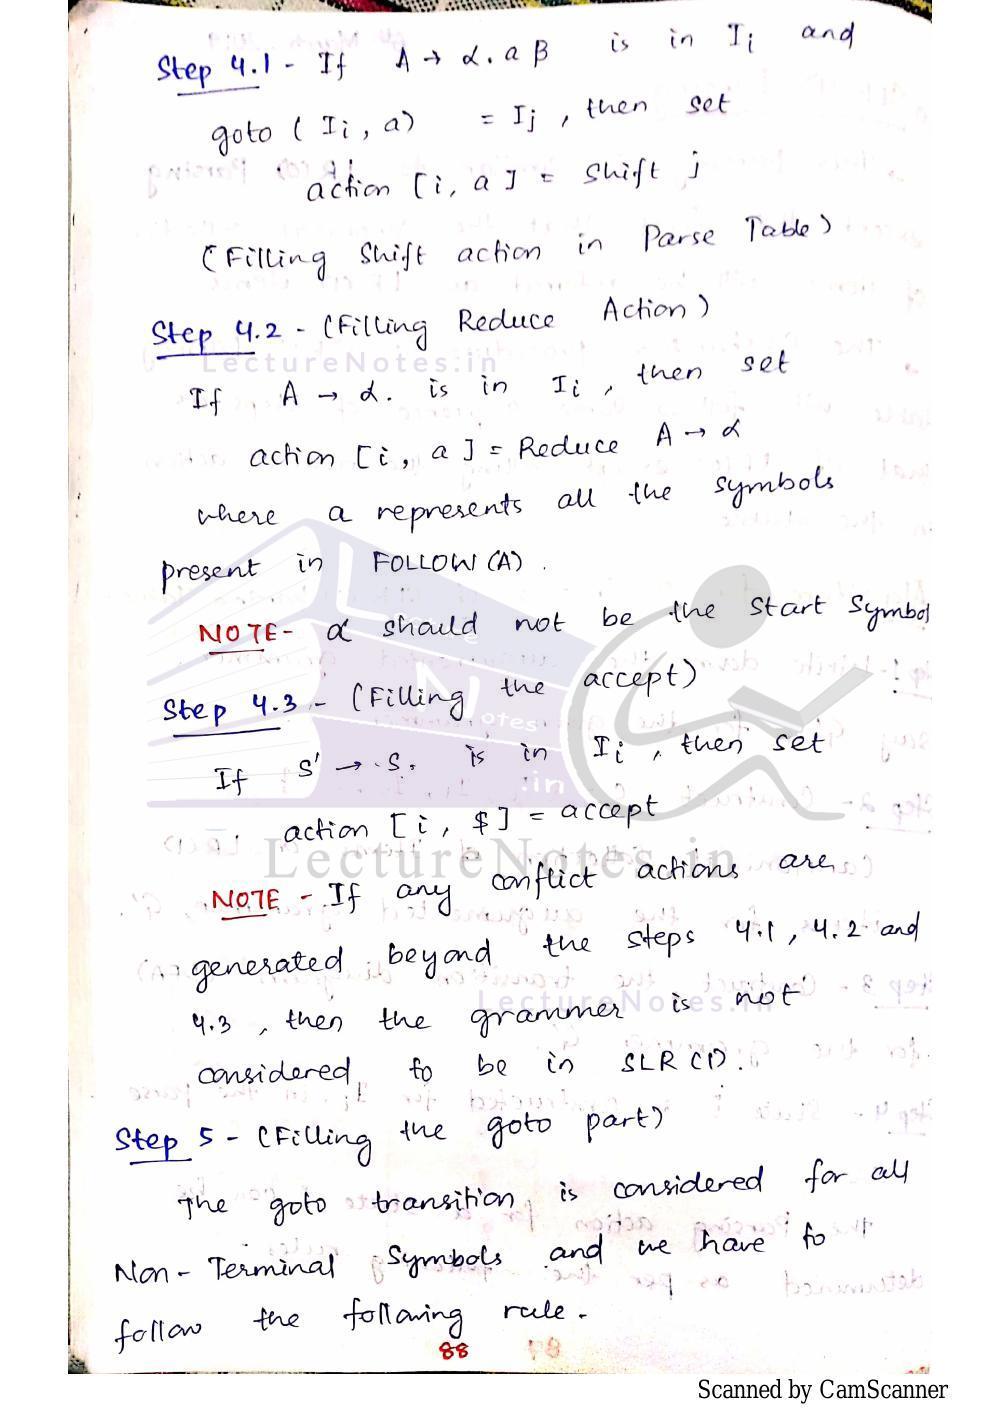 Step 4.1 - If A → α.aβ is in Ii and
goto (Ii, a) = Ij, then set
action [i, a] = Shift j
(Filling Shift action in Parse Table)
Step 4.2 - (Filling Reduce Action)
LectureNotes.in
If A → α. is in Ii, then set
action [i, a] = Reduce A → α
where a represents all the symbols
present in FOLLOW(A).
NOTE - α should not be the Start Symbol
Step 4.3 - (Filling the accept)
If S' → S. is in Ii, then set
action [i, $] = accept
LectureNotes.in
NOTE - If any conflict actions are
generated beyond the steps 4.1, 4.2 and
LectureNotes.in
4.3, then the grammer is not
considered to be in SLR(1).
Step 5 - (Filling the goto part)
The goto transition is considered for all
Non-Terminal Symbols and we have to
follow the following rule.
88
Scanned by CamScanner